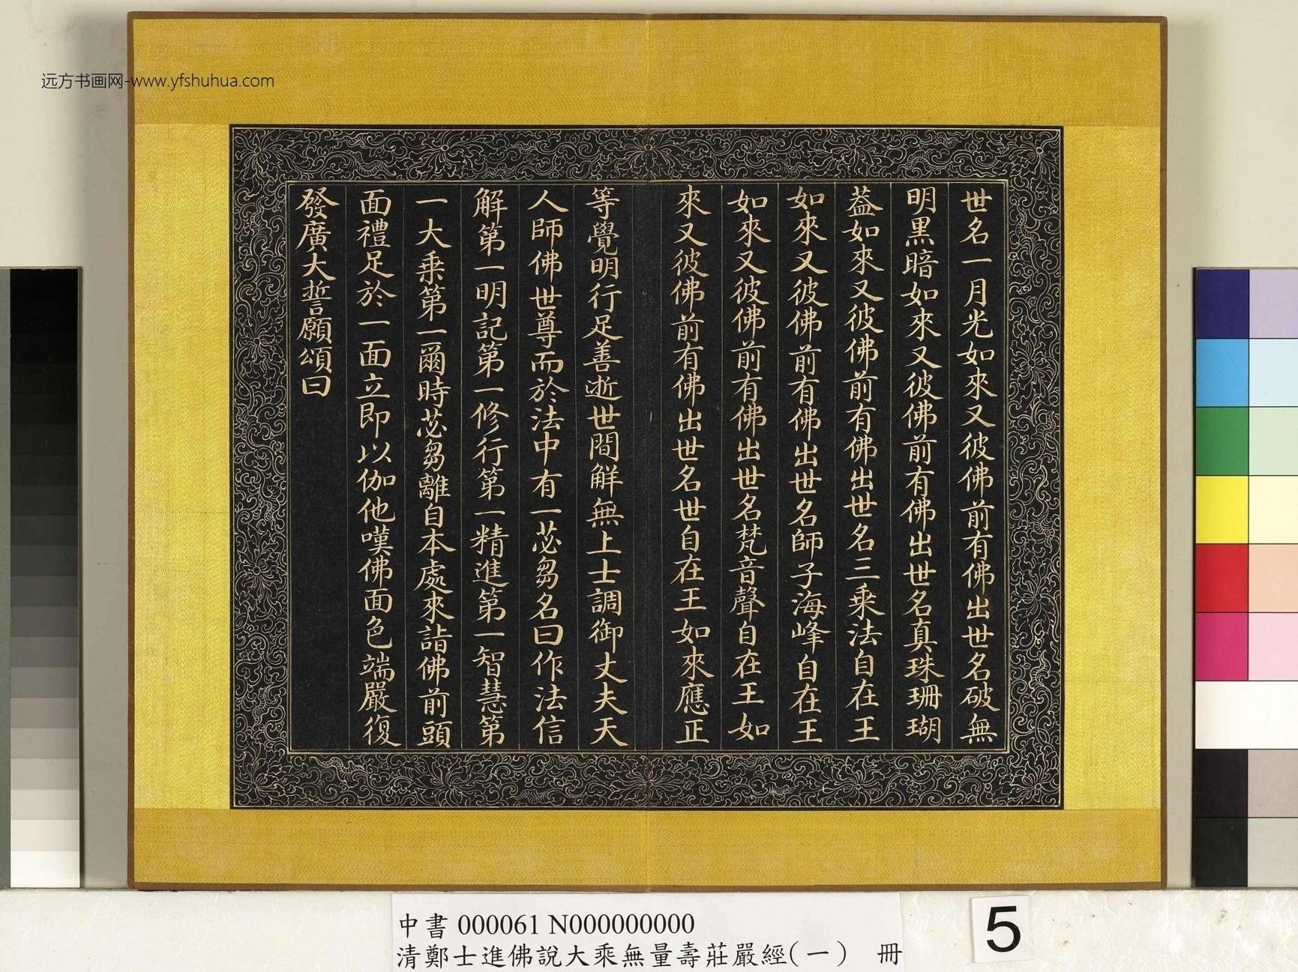 远方书画网-www.yfshuhua.com
世名一月光如來又彼佛前有佛出世名破無
明黒暗如來又彼佛前有佛出世名真珠珊瑚
葢如來又彼佛前有佛出世名三乘法自在王
如來又彼佛前有佛出世名師子海峰自在王
如來又彼佛前有佛出世名梵音聲自在王如
來又彼佛前有佛出世名世自在王如來應正
等覺明行足善逝世間解無上士調御丈夫天
人師佛世尊而於法中有一苾芻名曰作法信
解第一明記第一修行第一精進第一智慧第
一大乘第一爾時苾芻離自本處來詣佛前頭
面禮足於一面立即以伽他嘆佛面色端嚴復
發廣大誓願頌曰
中書 000061 N000000000
清鄭士進佛說大乘無量壽莊嚴經(一) 冊
5